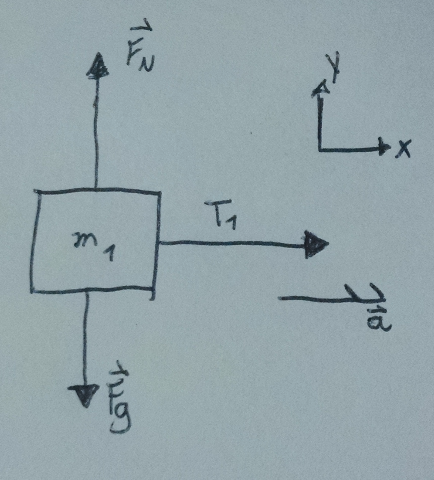 F⃗N
y
x
m₁
T₁
a⃗
F⃗g